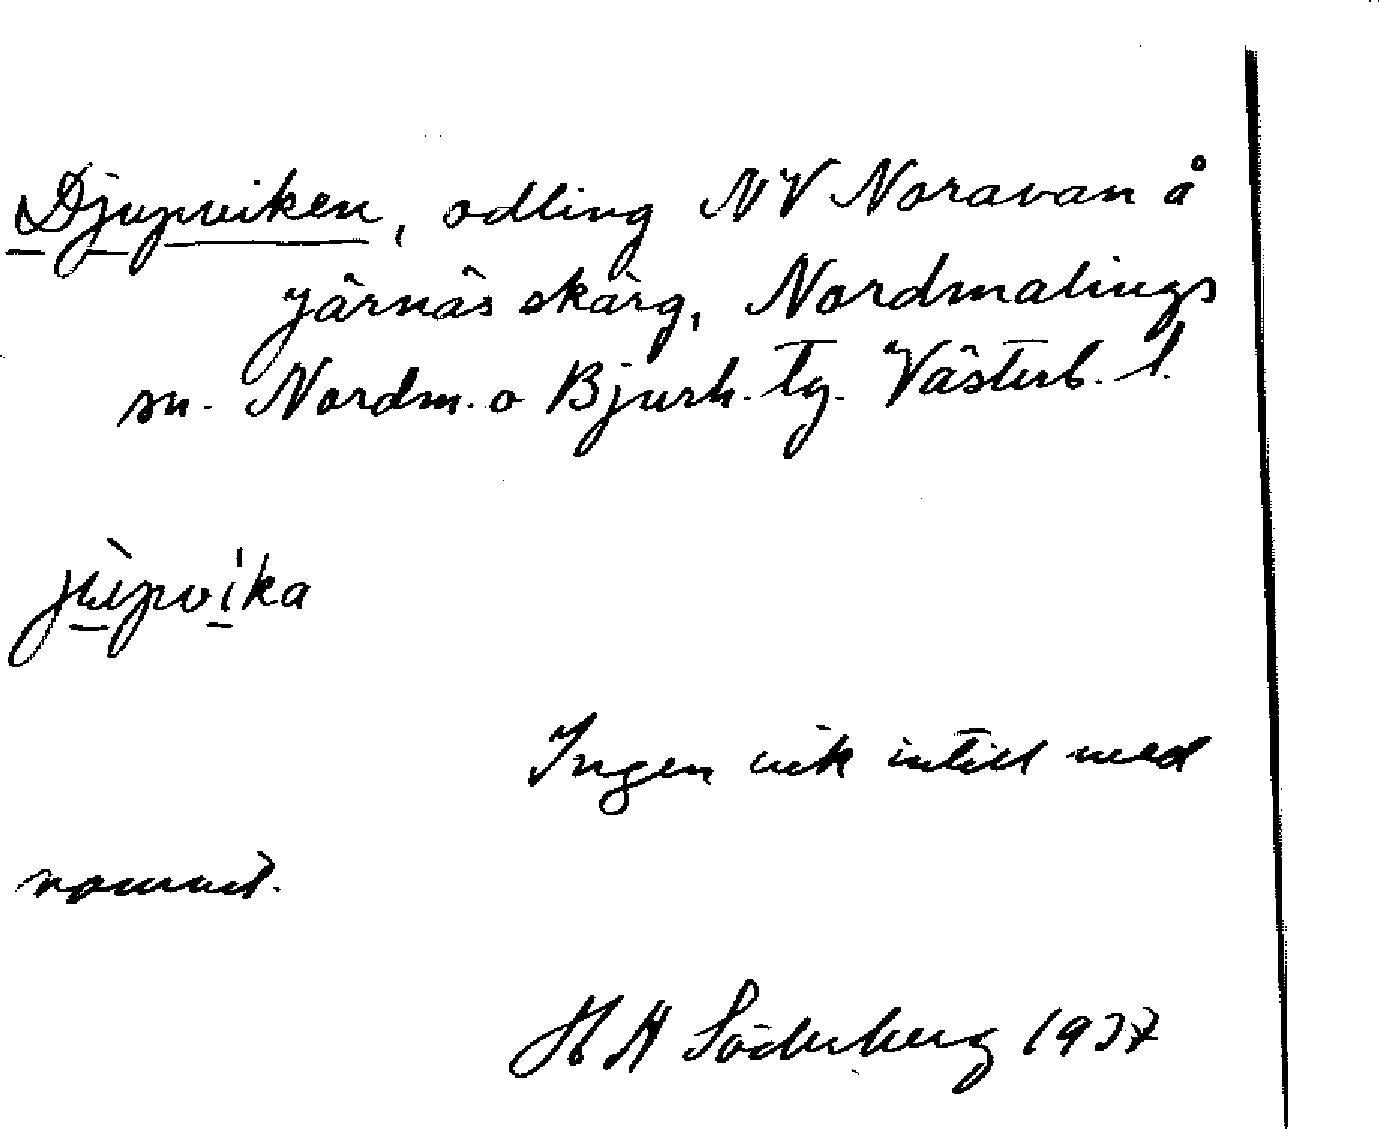 Djupviken, odling NV Noravan å
Järnäs skärg, Nordmalings
sn. Nordm. o Bjurh. tg. Västerb. l.
jùpvíka
Ingen vik intill med
namnet.
H A Söderberg 1937